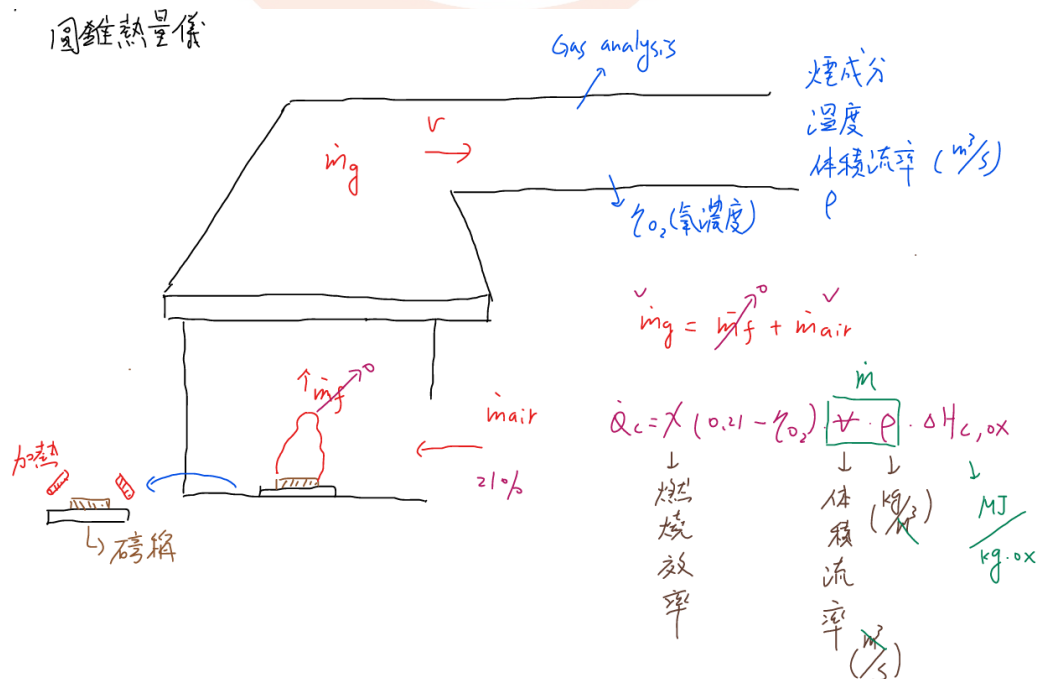 圓錐熱量儀
Gas analysis
煙成分
溫度
体積流率 (m³/s)
ρ
V
ṁg
η₀₂(氧濃度)
ṁg = ṁf + ṁair
0
ṁf
0
ṁair
21%
加熱
磅稱
ṁ
Q̇c = χ (0.21 - η₀₂) · V · ρ · ΔHc,ox
燃燒效率
体積流率 (m³/s)
(kg/m³)
MJ/kg·ox